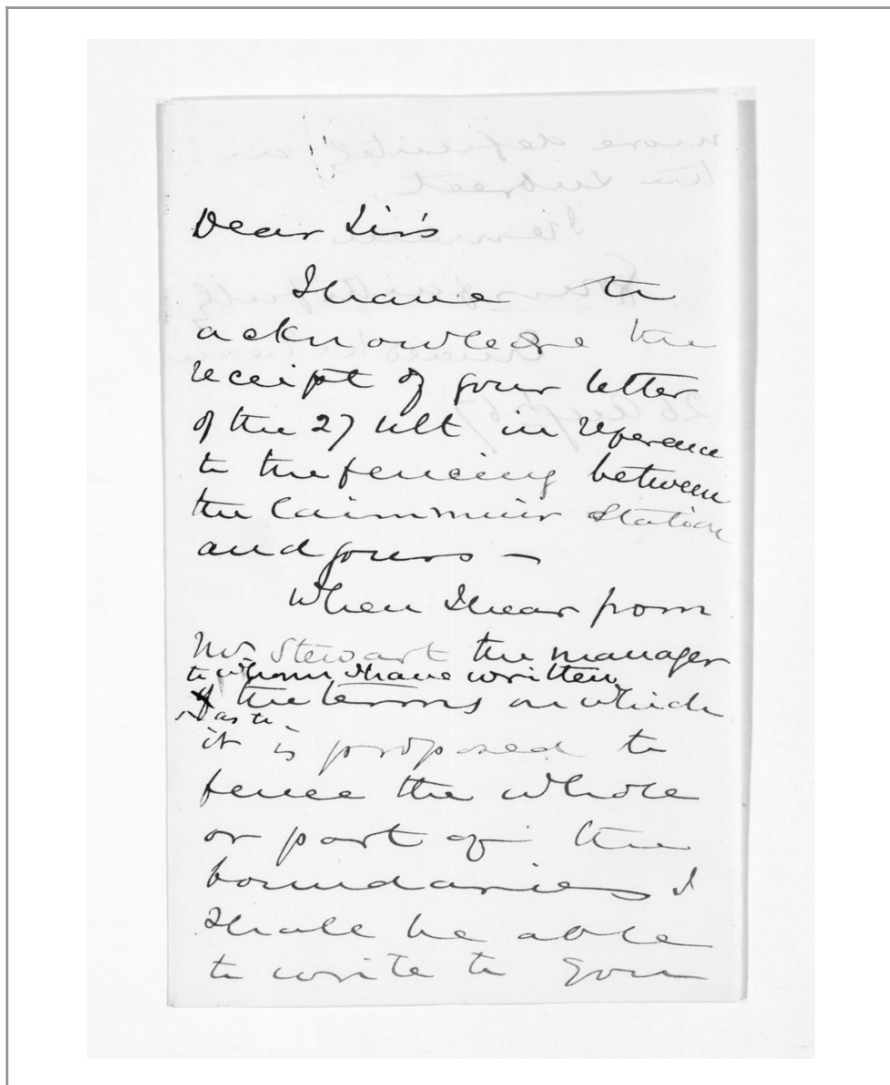 Dear Sir's
I have to
acknowledge the
receipt of your letter
of the 27 ult in reference
to the fencing between
the Cairnmuir Station
and yours —
When I hear from
Mr. Stewart the manager
to whom I have written
the terms on which
as to
it is proposed to
fence the whole
or part of the
boundaries I
shall be able
to write to you